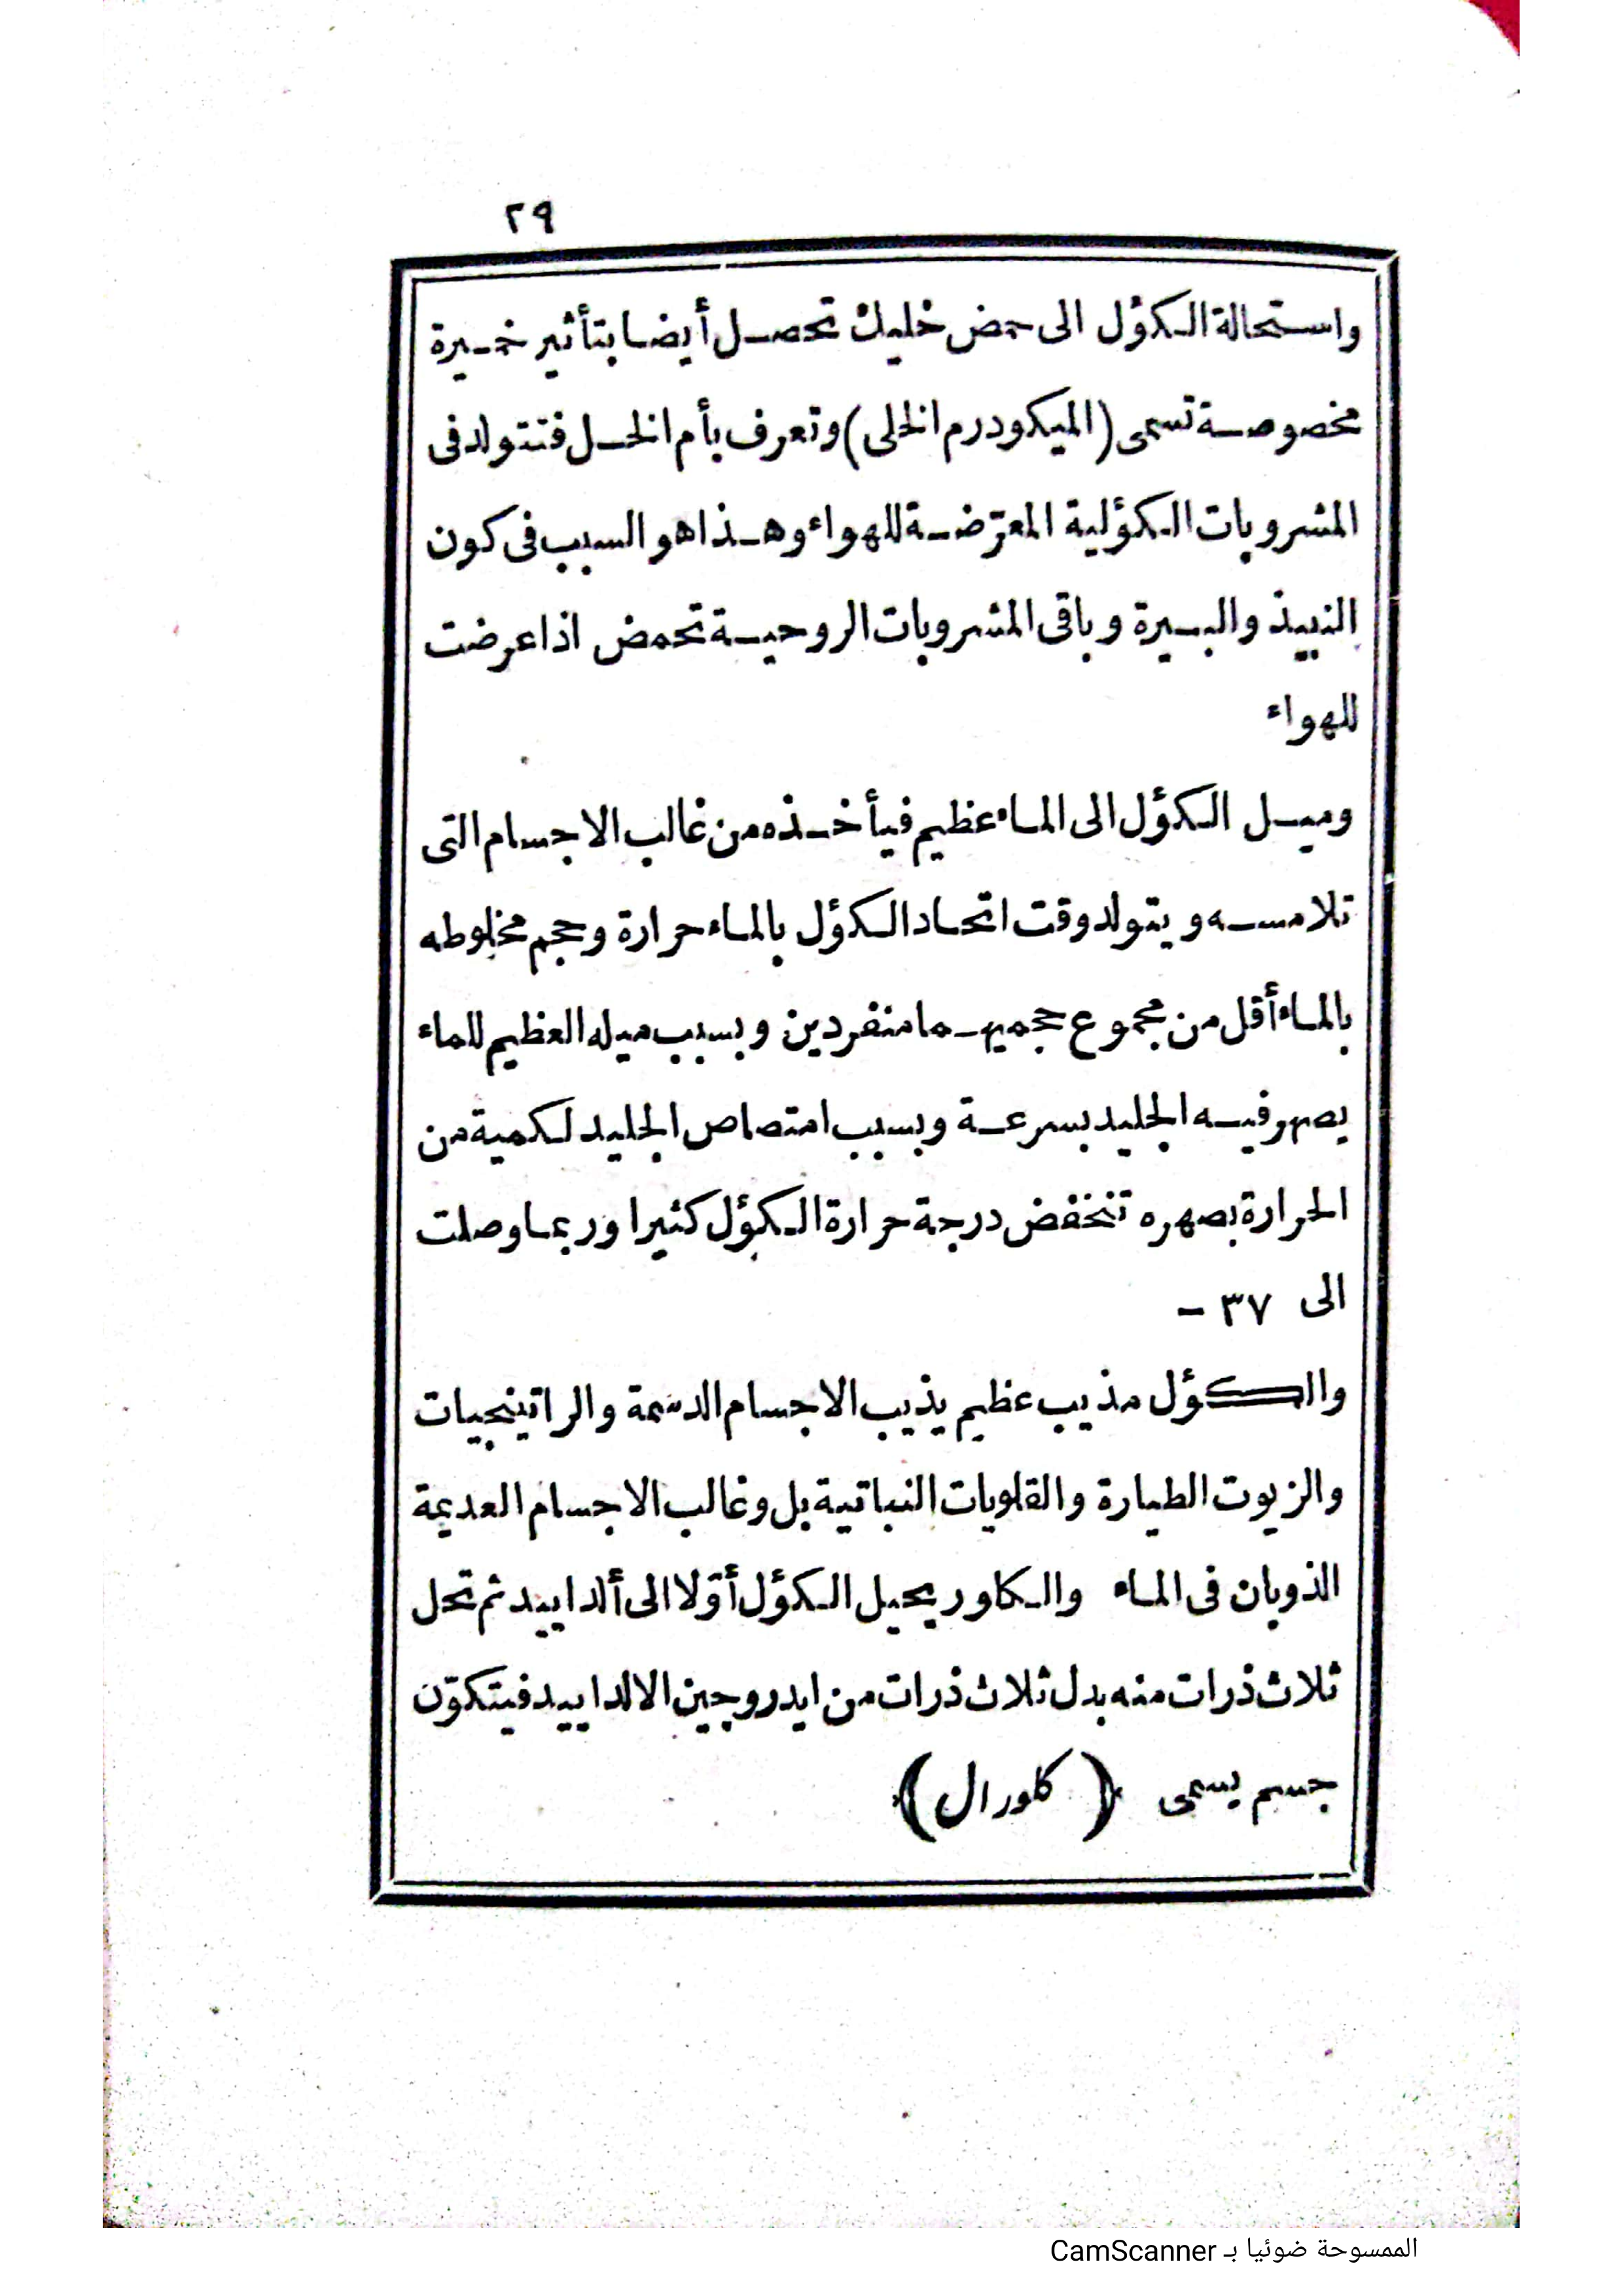 ٢٩
واستحالة الكؤل الى حمض خليك تحصل أيضا بتأثير خميرة
مخصوصة تسمى (الميكودرم الخلى) وتعرف بأم الخل فتتولد فى
المشروبات الكؤلية المعرّضة للهواء وهذا هو السبب فى كون
النبيذ والبيرة وباقى المشروبات الروحية تحمض اذا عرضت
للهواء
وميل الكؤل الى الماء عظيم فيأخذه من غالب الاجسام التى
تلامسه ويتولد وقت اتحاد الكؤل بالماء حرارة وحجم مخلوطه
بالماء أقل من مجموع حجميهما منفردين وبسبب ميله العظيم للماء
يصهر فيه الجليد بسرعة وبسبب امتصاص الجليد لكمية من
الحرارة بصهره تنخفض درجة حرارة الكؤل كثيرا وربما وصلت
الى ٣٧ −
والكؤل مذيب عظيم يذيب الاجسام الدسمة والراتينجيات
والزيوت الطيارة والقلويات النباتية بل وغالب الاجسام العديمة
الذوبان فى الماء والكاور يحيل الكؤل أوّلا الى ألداييد ثم تحل
ثلاث ذرات منه بدل ثلاث ذرات من ايدروجين الالداييد فيتكوّن
جسم يسمى (كلورال)
الممسوحة ضوئيا بـ CamScanner